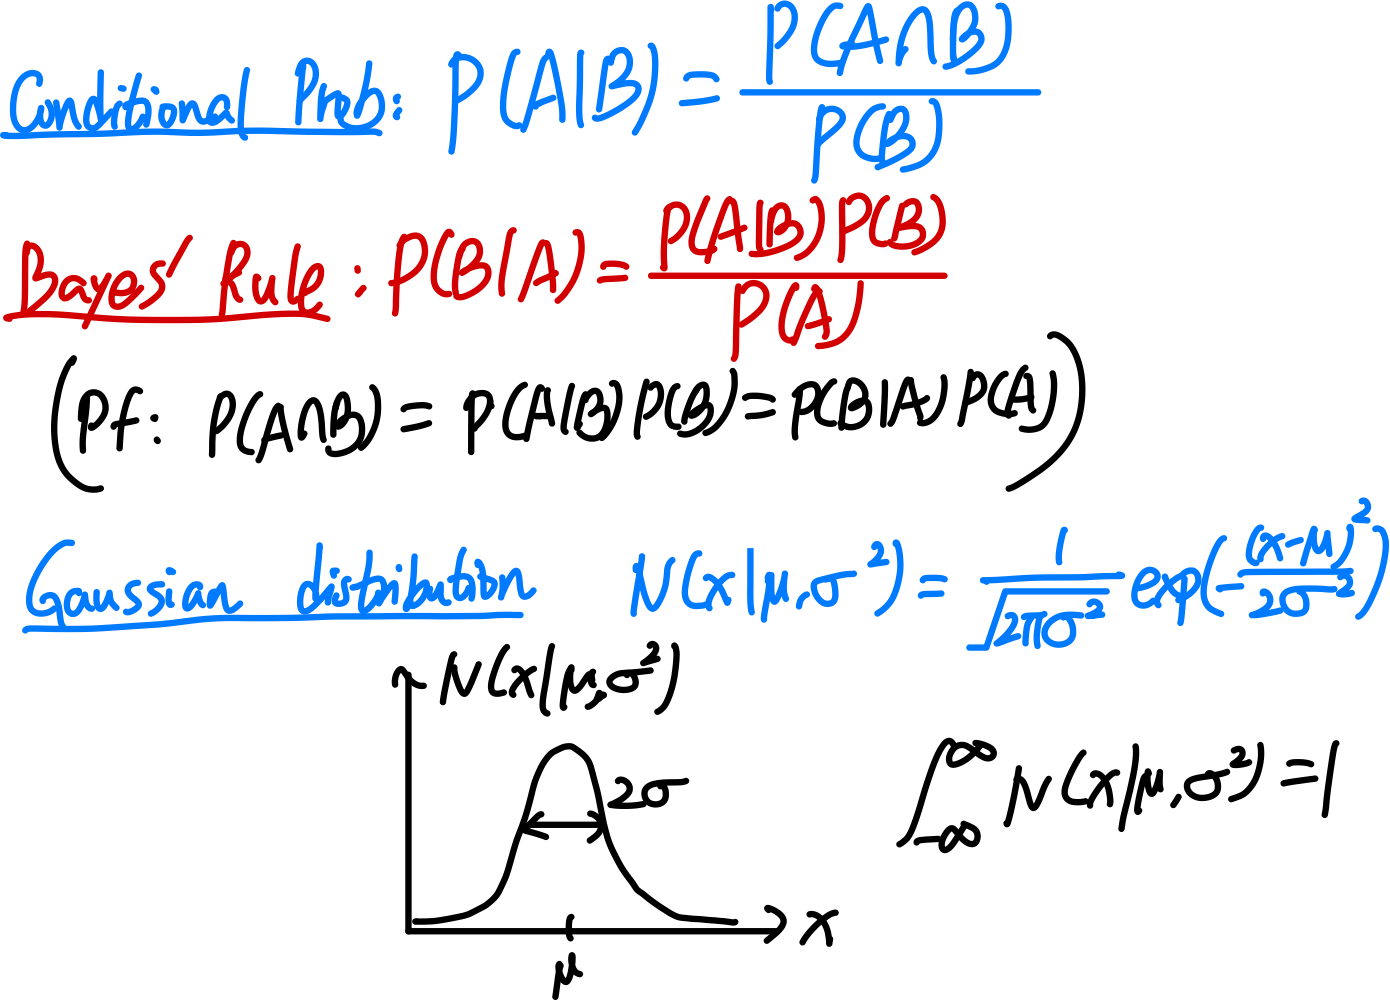 Conditional Prob: P(A|B) = P(A∩B) / P(B)
Bayes' Rule: P(B|A) = P(A|B)P(B) / P(A)
(Pf: P(A∩B) = P(A|B)P(B) = P(B|A)P(A))
Gaussian distribution N(x|μ,σ²) = 1/√(2πσ²) exp(-(x-μ)²/2σ²)
N(x|μ,σ²)
2σ
∫_{-∞}^{∞} N(x|μ,σ²) = 1
x
μ